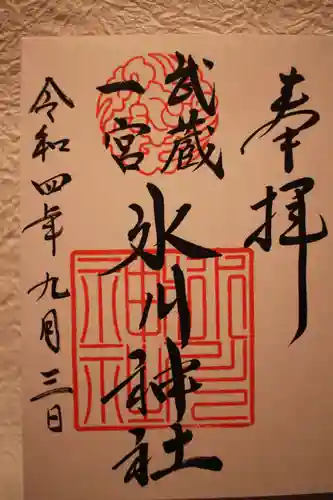 奉拝
武蔵
一宮
氷川神社
令和四年九月三日